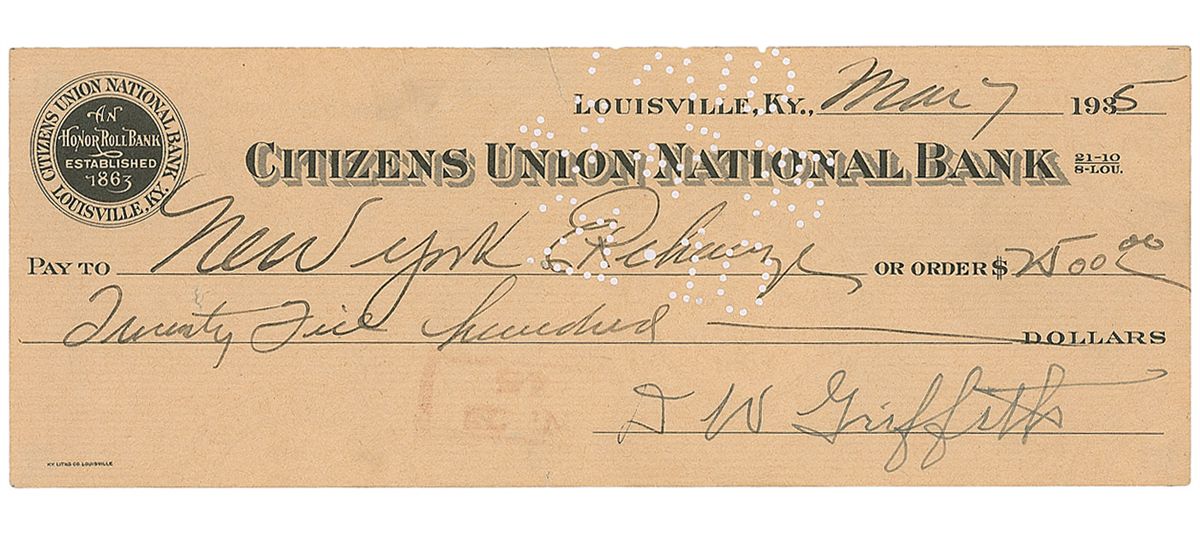 CITIZENS UNION NATIONAL BANK
LOUISVILLE, KY.
AN
HONOR ROLL BANK
ESTABLISHED
1863
LOUISVILLE, KY., Mar 7 1935
CITIZENS UNION NATIONAL BANK 21-10 8-LOU.
PAY TO New York Exchange OR ORDER $ 2500 00
Twenty Five hundred DOLLARS
D W Griffith
KY. LITHO. CO. LOUISVILLE